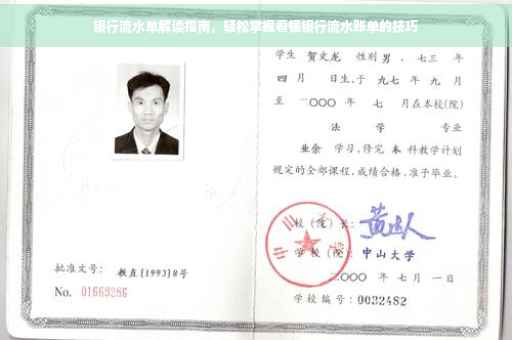 银行流水单解读指南，轻松掌握看懂银行流水账单的技巧
学生 贺文龙 性别 男，七三 年
四 月 日生，于 九七 年 九 月
至 二〇〇〇 年 七 月在本校(院)
法 学 专业
业余 学习，修完 本 科教学计划
规定的全部课程，成绩合格，准予毕业。
校 (院) 长：
学 校 (院)：中山大学
二〇〇〇 年 七 月 一 日
学校编号：0032482
批准文号： 教直(1993)8号
No. 01669286